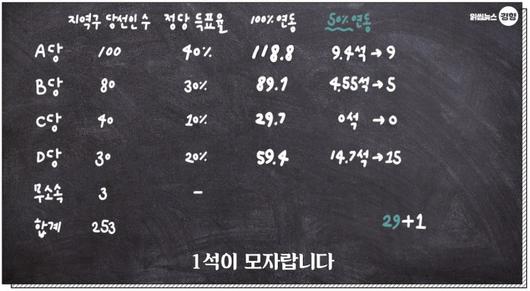 읽씹뉴스 경향
지역구 당선인수 정당 득표율 100% 연동 50% 연동
A당 100 40% 118.8 9.4석→9
B당 80 30% 89.1 4.55석→5
C당 40 10% 29.7 0석→0
D당 30 20% 59.4 14.7석→15
무소속 3 -
합계 253 29+1
1석이 모자랍니다